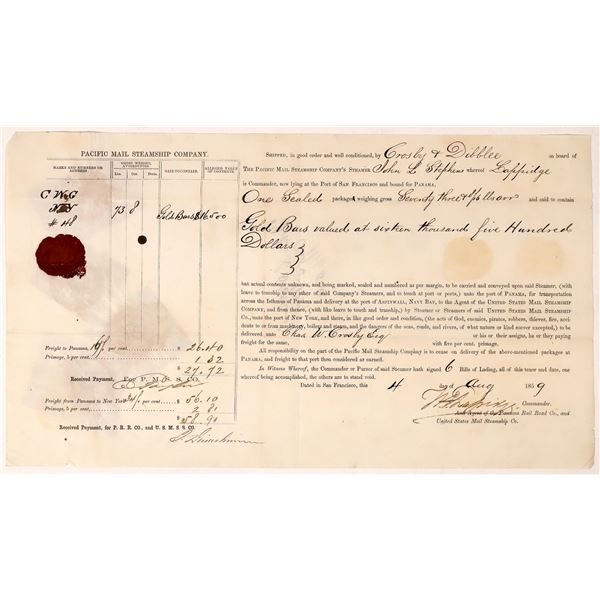 PACIFIC MAIL STEAMSHIP COMPANY.
MARKS AND NUMBERS OR ADDRESS
GROSS WEIGHT, AVOIRDUPOIS.
Lbs. Ozs. Dwts.
SAID TO CONTAIN.
DECLARED VALUE OF CONTENTS.
C W C
N Y
# 48
73 8 Gold Bars $16,500
Freight to Panama, per cent. $ 26.40
Primage, 5 per cent. 1.32
$ 27.72
Received Payment, For P. M. S. S. CO.
Freight from Panama to New York per cent. $ 56.10
Primage, 5 per cent. 2.81
$ 58.91
Received Payment, for P. R. R. CO., and U. S. M. S. S. CO.
SHIPPED, in good order and well conditioned, by Crosby & Dibblee on board of
THE PACIFIC MAIL STEAMSHIP COMPANY'S STEAMER John L Stephens whereof Lappidge
is Commander, now lying at the Port of SAN FRANCISCO and bound for PANAMA.
One Sealed package weighing gross Seventy three & and said to contain
Gold Bars valued at sixteen thousand five Hundred
Dollars
but actual contents unknown, and being marked, sealed and numbered as per margin, to be carried and conveyed upon said Steamer, (with
leave to transship to any other of said Company's Steamers, and to touch at port or ports,) unto the port of PANAMA, for transportation
across the Isthmus of Panama and delivery at the port of ASPINWALL, NAVY BAY, to the Agent of the UNITED STATES MAIL STEAMSHIP
COMPANY, and from thence, (with like leave to touch and transship,) by Steamer or Steamers of said UNITED STATES MAIL STEAMSHIP
CO., unto the port of NEW YORK, and there, in like good order and condition, (the acts of God, enemies, pirates, robbers, thieves, fire, accidents
to or from machinery, boilers and steam, and the dangers of the seas, roads, and rivers, of what nature or kind soever excepted,) to be
delivered unto Chas W. Crosby Esq or his assigns, he or they paying
freight for the same, with five per cent. primage.
All responsibility on the part of the Pacific Mail Steamship Company is to cease on delivery of the above-mentioned packages at
PANAMA, and freight to that port then considered as earned.
In Witness Whereof, the Commander or Purser of said Steamer hath signed 6 Bills of Lading, all of this tenor and date, one
whereof being accomplished, the others are to stand void.
Dated in San Francisco, this 4 day of Aug 1859
Commander.
And Agent of the Panama Rail Road Co., and
United States Mail Steamship Co.